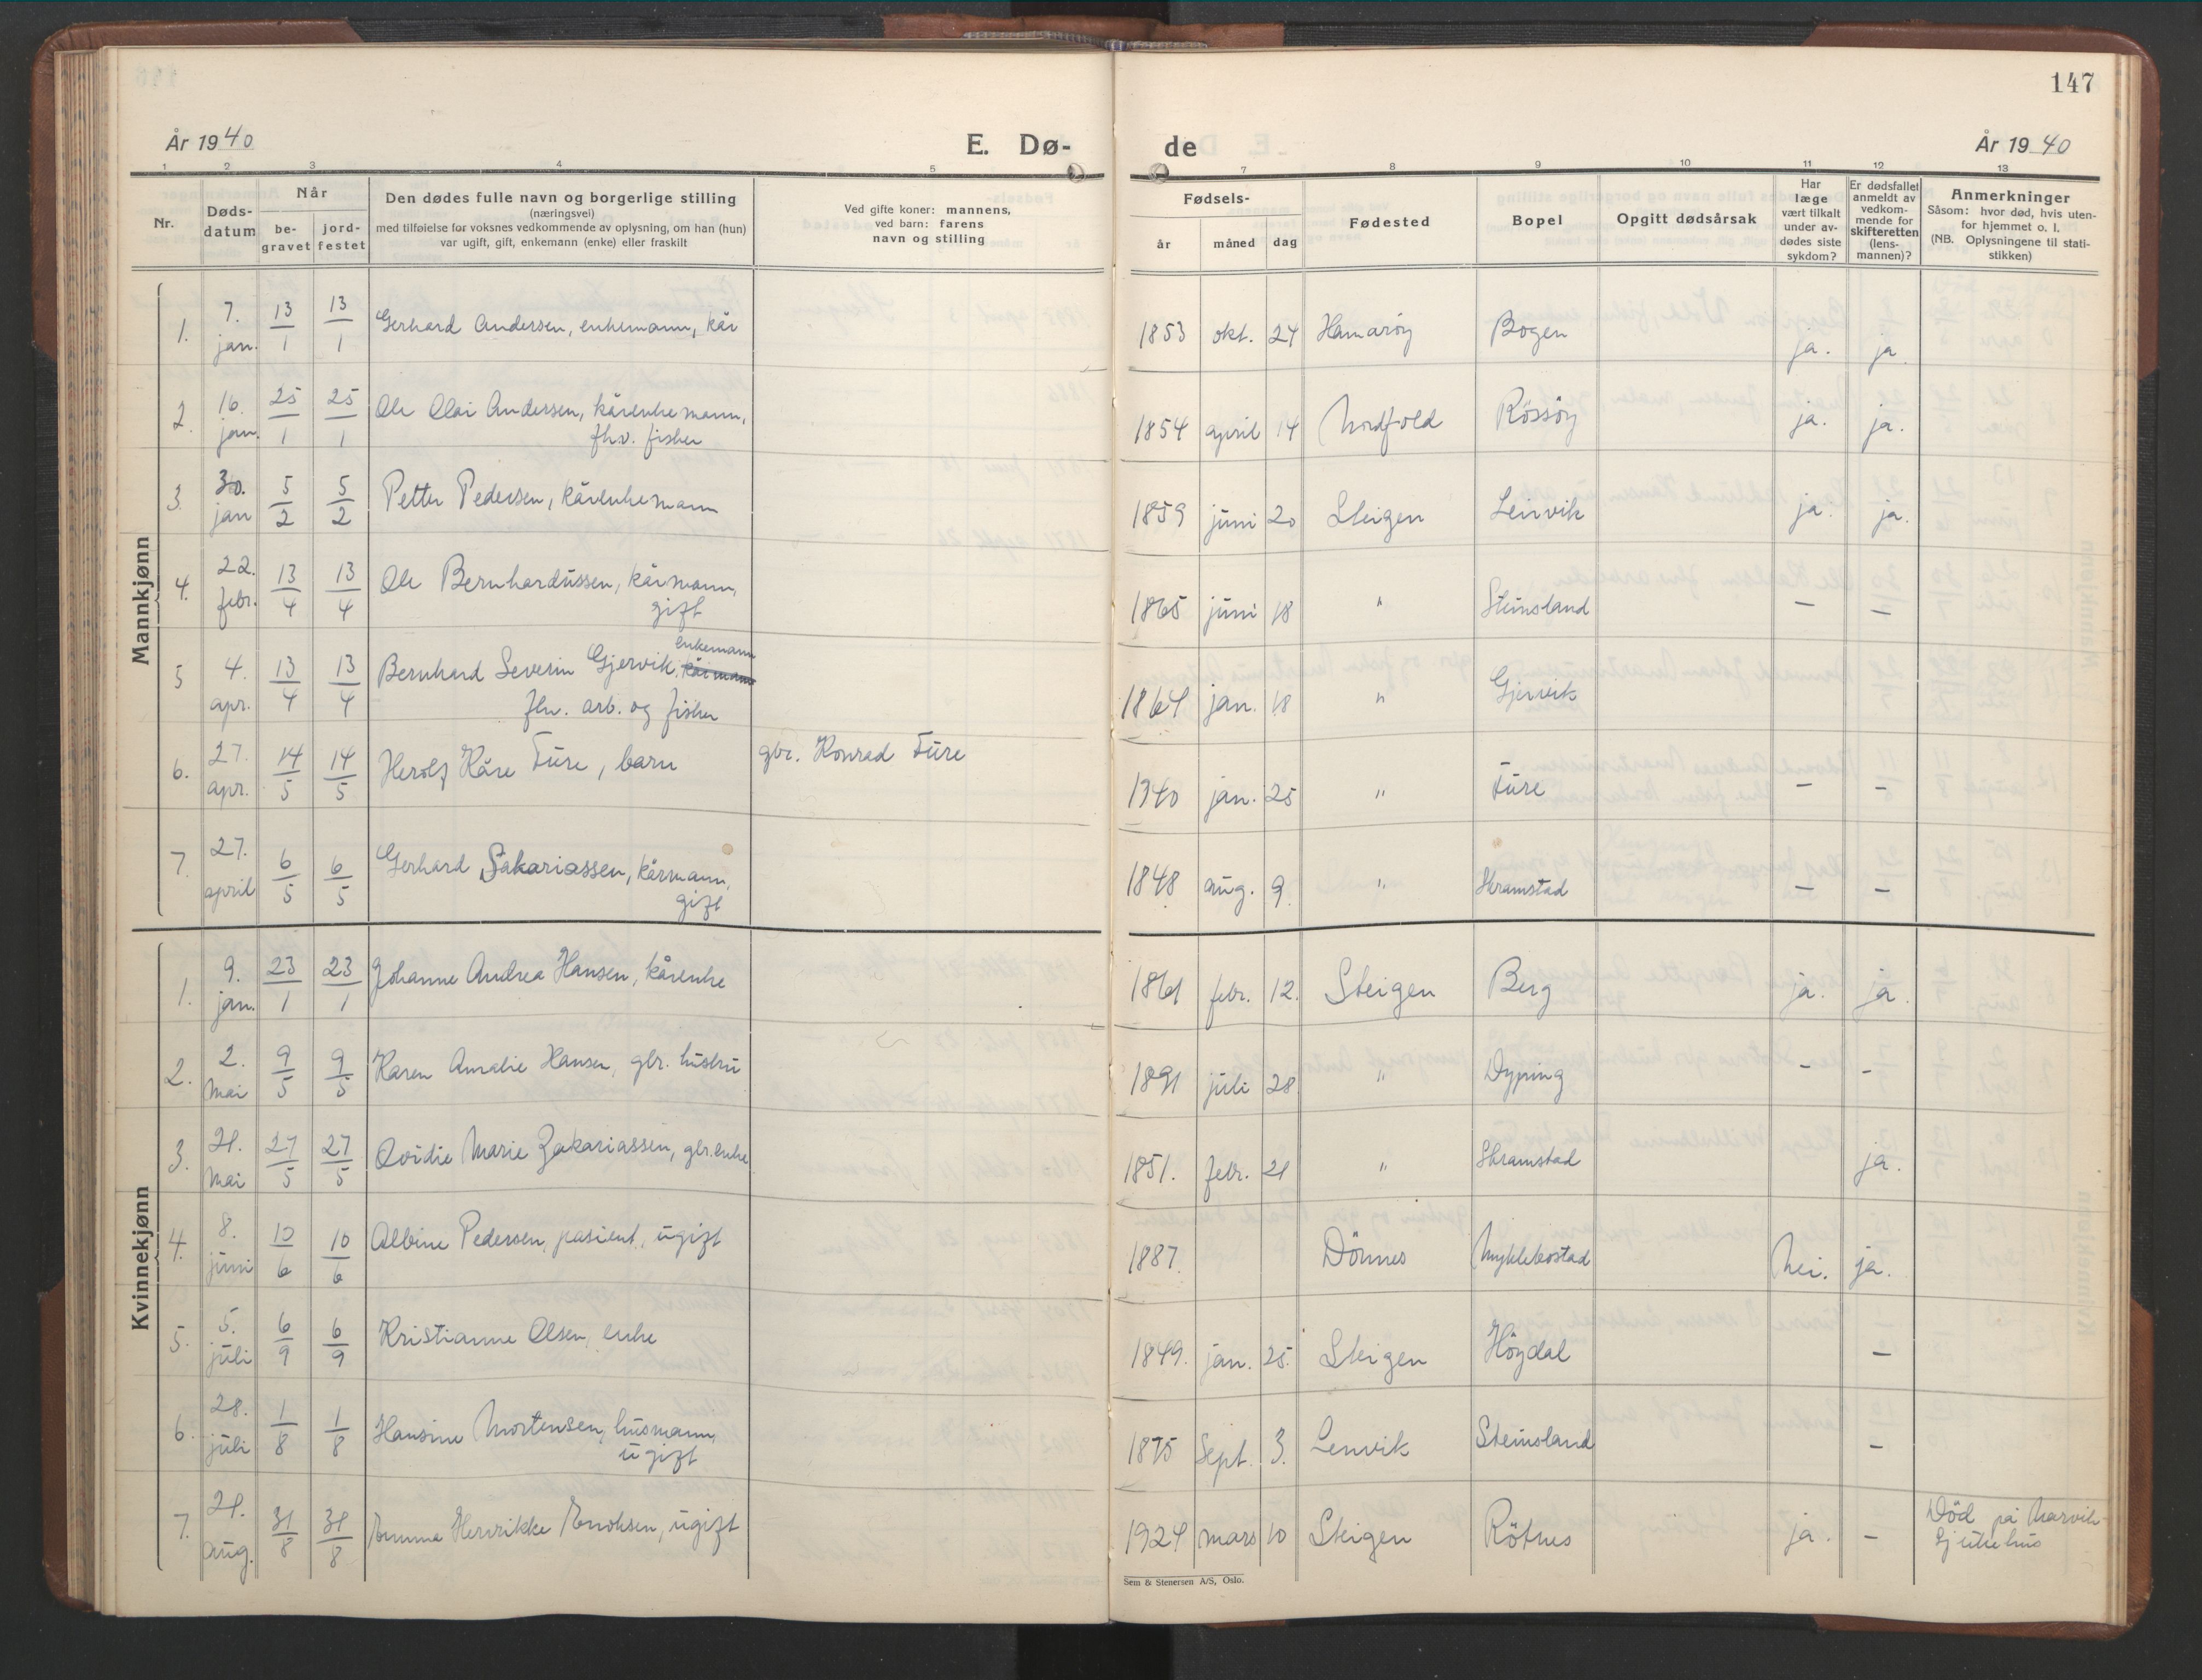 147
År 1940
E. Dø-
de
År 1940
1 2 3 4 5 7 8 9 10 11 12 13
Nr.
Døds-
datum
Når
be-
gravet
jord-
festet
Den dødes fulle navn og borgerlige stilling
(næringsvei)
med tilføielse før voksnes vedkommende av oplysning, om han (hun)
var ugift, gift, enkemann (enke) eller fraskilt
Ved gifte koner: mannens,
ved barn: farens
navn og stilling
Fødsels-
år
måned
dag
Fødested
Bopel
Opgitt dødsårsak
Har
læge
vært tilkalt
under av-
dødes siste
sykdom?
Er dødsfallet
anmeldt av
vedkom-
mende for
skifteretten
(lens-
mannen)?
Anmerkninger
Såsom: hvor død, hvis uten-
for hjemmet o. l.
(NB. Oplysningene til stati-
stikken)
Mannkjønn
1. 7. jan. 13/1 13/1 Gerhard Andersen, enkemann, kår 1853 okt. 24 Hamarøy Bogen ja. ja.
2. 16. jan. 25/1 25/1 Ole Olai Andersen, kårenkemann,
fhv. fisker 1854 april 14 Nordfold Røssøy ja. ja.
3. 30. jan 5/2 5/2 Petter Pedersen, kårenkemann 1859 juni 20 Steigen Leirvik ja. ja.
4. 22. febr. 13/4 13/4 Ole Bernhardussen, kårmann,
gift 1865 juni 18 " Steinsland – –
5 4. apr. 13/4 13/4 Bernhard Severin Gjervik, kårmann enkemann
fhv. arb. og fisker 1864 jan. 18 " Gjervik
6. 27. apr. 14/5 14/5 Herolf Kåre Ture, barn gbr. Konrad Ture 1940 jan. 25 " Ture – –
7. 27. april 6/5 6/5 Gerhard Sakariassen, kårmann,
gift 1848 aug. 9. " Skramstad – –
Kvinnekjønn
1. 9. jan. 23/1 23/1 Johanne Andrea Hansen, kårenke 1861 febr. 12. Steigen Berg ja. ja.
2. 2. mai 9/5 9/5 Karen Amalie Hansen, gbr. hustru 1891 juli 28 " Dyping – –
3. 21. mai 27/5 27/5 Ovidie Marie Zakariassen, gbr.enke 1851. febr. 21 " Skramstad ja.
4. 8. juni 10/6 10/6 Albine Pedersen, pasient, ugift 1887. Dönnes Myklebostad Nei. ja.
5. 5. juli 6/9 6/9 Kristianne Olsen, enke 1849. jan. 25. Steigen Høydal –
6. 28. juli 1/8 1/8 Hansine Mortensen, husmann,
ugift 1875 Sept. 3. Lenvik Steinsland –
7. 21. aug. 31/8 31/8 Emma Henrikke Enoksen, ugift 1924 mars 10 Steigen Røtnes ja. – Död på Narvik
Sjukehus
Sem & Stenersen A/S, Oslo.